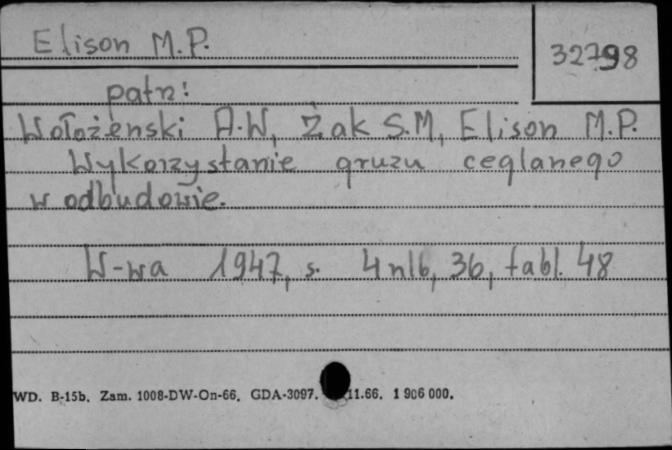 Elison M.P.
32798
patrz:
Wołożenski A.W, Żak S.M, Elison M.P.
Wykorzystanie gruzu ceglanego
w odbudowie.
W-wa 1947, s. 4 nlb, 36, tabl. 48
WD. B-15b. Zam. 1008-DW-On-66. GDA-3097. 11.66. 1 906 000.